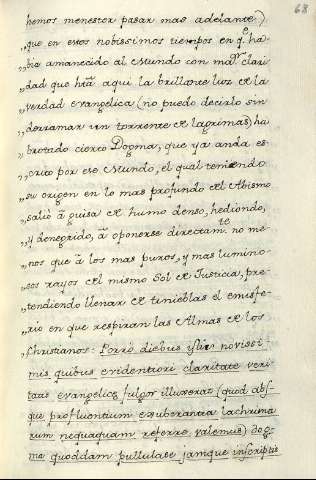 68
hemos menester pasar mas adelante.)
„que en esos nobissimos tiempos en qᵉ ha-
„bia amanecido al Mundo con mãr. clari
„dad que htã aqui la brillante luz de la
„verdad evangelica (no puedo decirlo sin
„derramar un torrente de lagrimas) ha
„brotado cierto Dogma, que ya anda es-
„crito por ese Mundo, el qual teniendo
„su origen en lo mas profundo del Abismo
„saliò à guisa de humo denso, hediondo,
„y denegrido, à oponerse directamᵗᵉ. no me-
„nos que à los mas puros, y mas lumino-
„sos rayos del mismo Sol de Justicia, pre-
„tendiendo llenar de tinieblas el emisfe-
„rio en que respiran las Almas de los
„Christianos: Porrò diebus istis novissi-
mis quibus evidentiori claritate veri
tatis evangelicæ fulgor illuxerat (quod abs-
que profluentium exuberantia lachrima
rum nequaquam referre valemus) dog-
ma quoddam pullulare jamque inscriptis